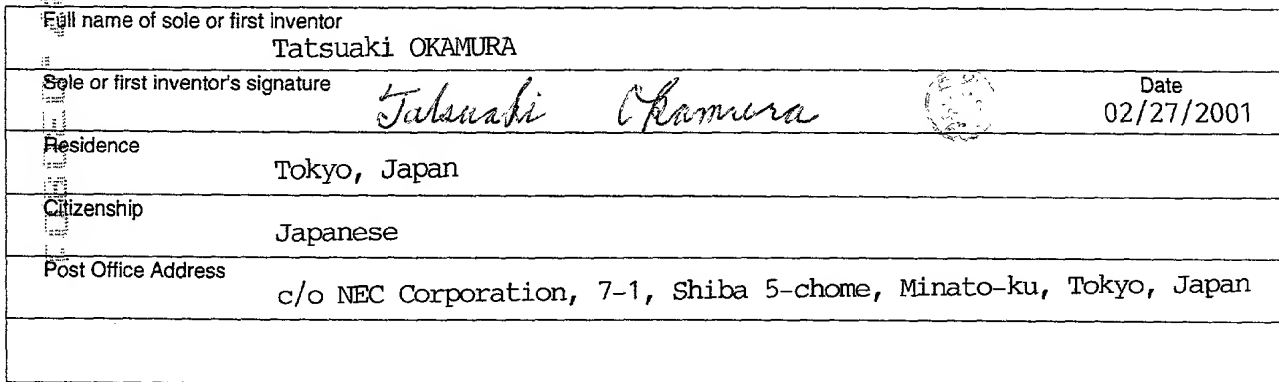 Full name of sole or first inventor
Tatsuaki OKAMURA
Sole or first inventor's signature
Tatsuaki Okamura
Date
02/27/2001
Residence
Tokyo, Japan
Citizenship
Japanese
Post Office Address
c/o NEC Corporation, 7-1, Shiba 5-chome, Minato-ku, Tokyo, Japan